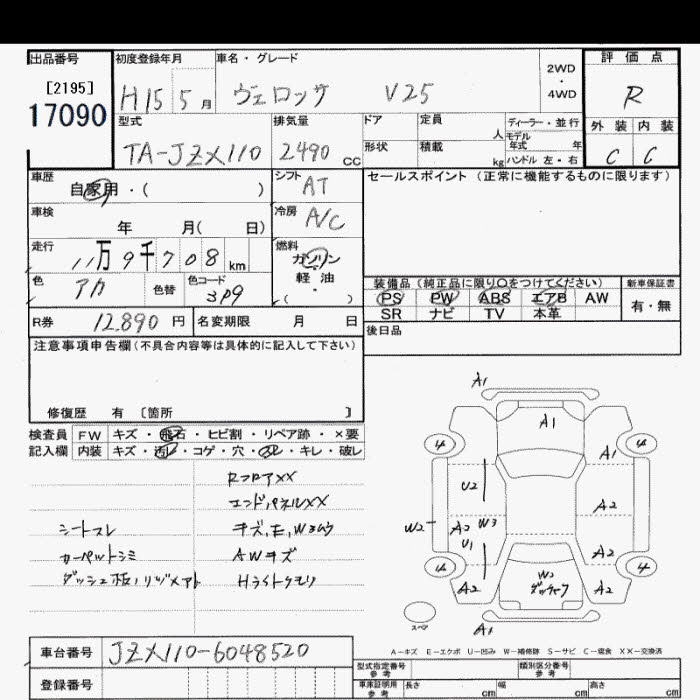 出品番号 初度登録年月 車名・グレード 2WD・4WD 評価点
[2195]
17090 H15 5月 ヴェロッサ V25 R
型式 排気量 ドア 定員 人 ディーラー・並行 外装 内装
モデル年式 年
TA-JZX110 2490 cc 形状 積載 kg ハンドル 左・右 C C
車歴 シフト セールスポイント (正常に機能するものに限ります)
自家用・( ) AT
車検 冷房
年 月( 日) A/C
走行 燃料
11万9千708km ガソリン
色 アカ 色替 色コード 3P9 軽油・( )
装備品 (純正品に限り○をつけてください) 新車保証書
PS PW ABS エアB AW 有・無
SR ナビ TV 本革
R券 12,890円 名変期限 月 日 後日品
注意事項申告欄(不具合内容等は具体的に記入して下さい)
修復歴 有 〔箇所 〕
検査員 FW キズ・飛石・ヒビ割・リペア跡・×要
記入欄 内装 キズ・汚レ・コゲ・穴・スレ・キレ・破レ
RフロアXX
エンドパネルXX
シートスレ キズ,E,Wヨウ
カーペットシミ AWキズ
ダッシュ板ノリヅメアト Hライトクモリ
A1
A1
4 A1 4
U2 A2
W2 A2 W3
U1 A2
4 4
A2 W2 A2
スペア A1
A-キズ E-エクボ U-凹み W-補修跡 S-サビ C-腐食 XX-交換済
車台番号 JZX110-6048520
登録番号
型式指定番号 参考 類別区分番号 参考
車庫証明用 参考 長さ cm 幅 cm 高さ cm